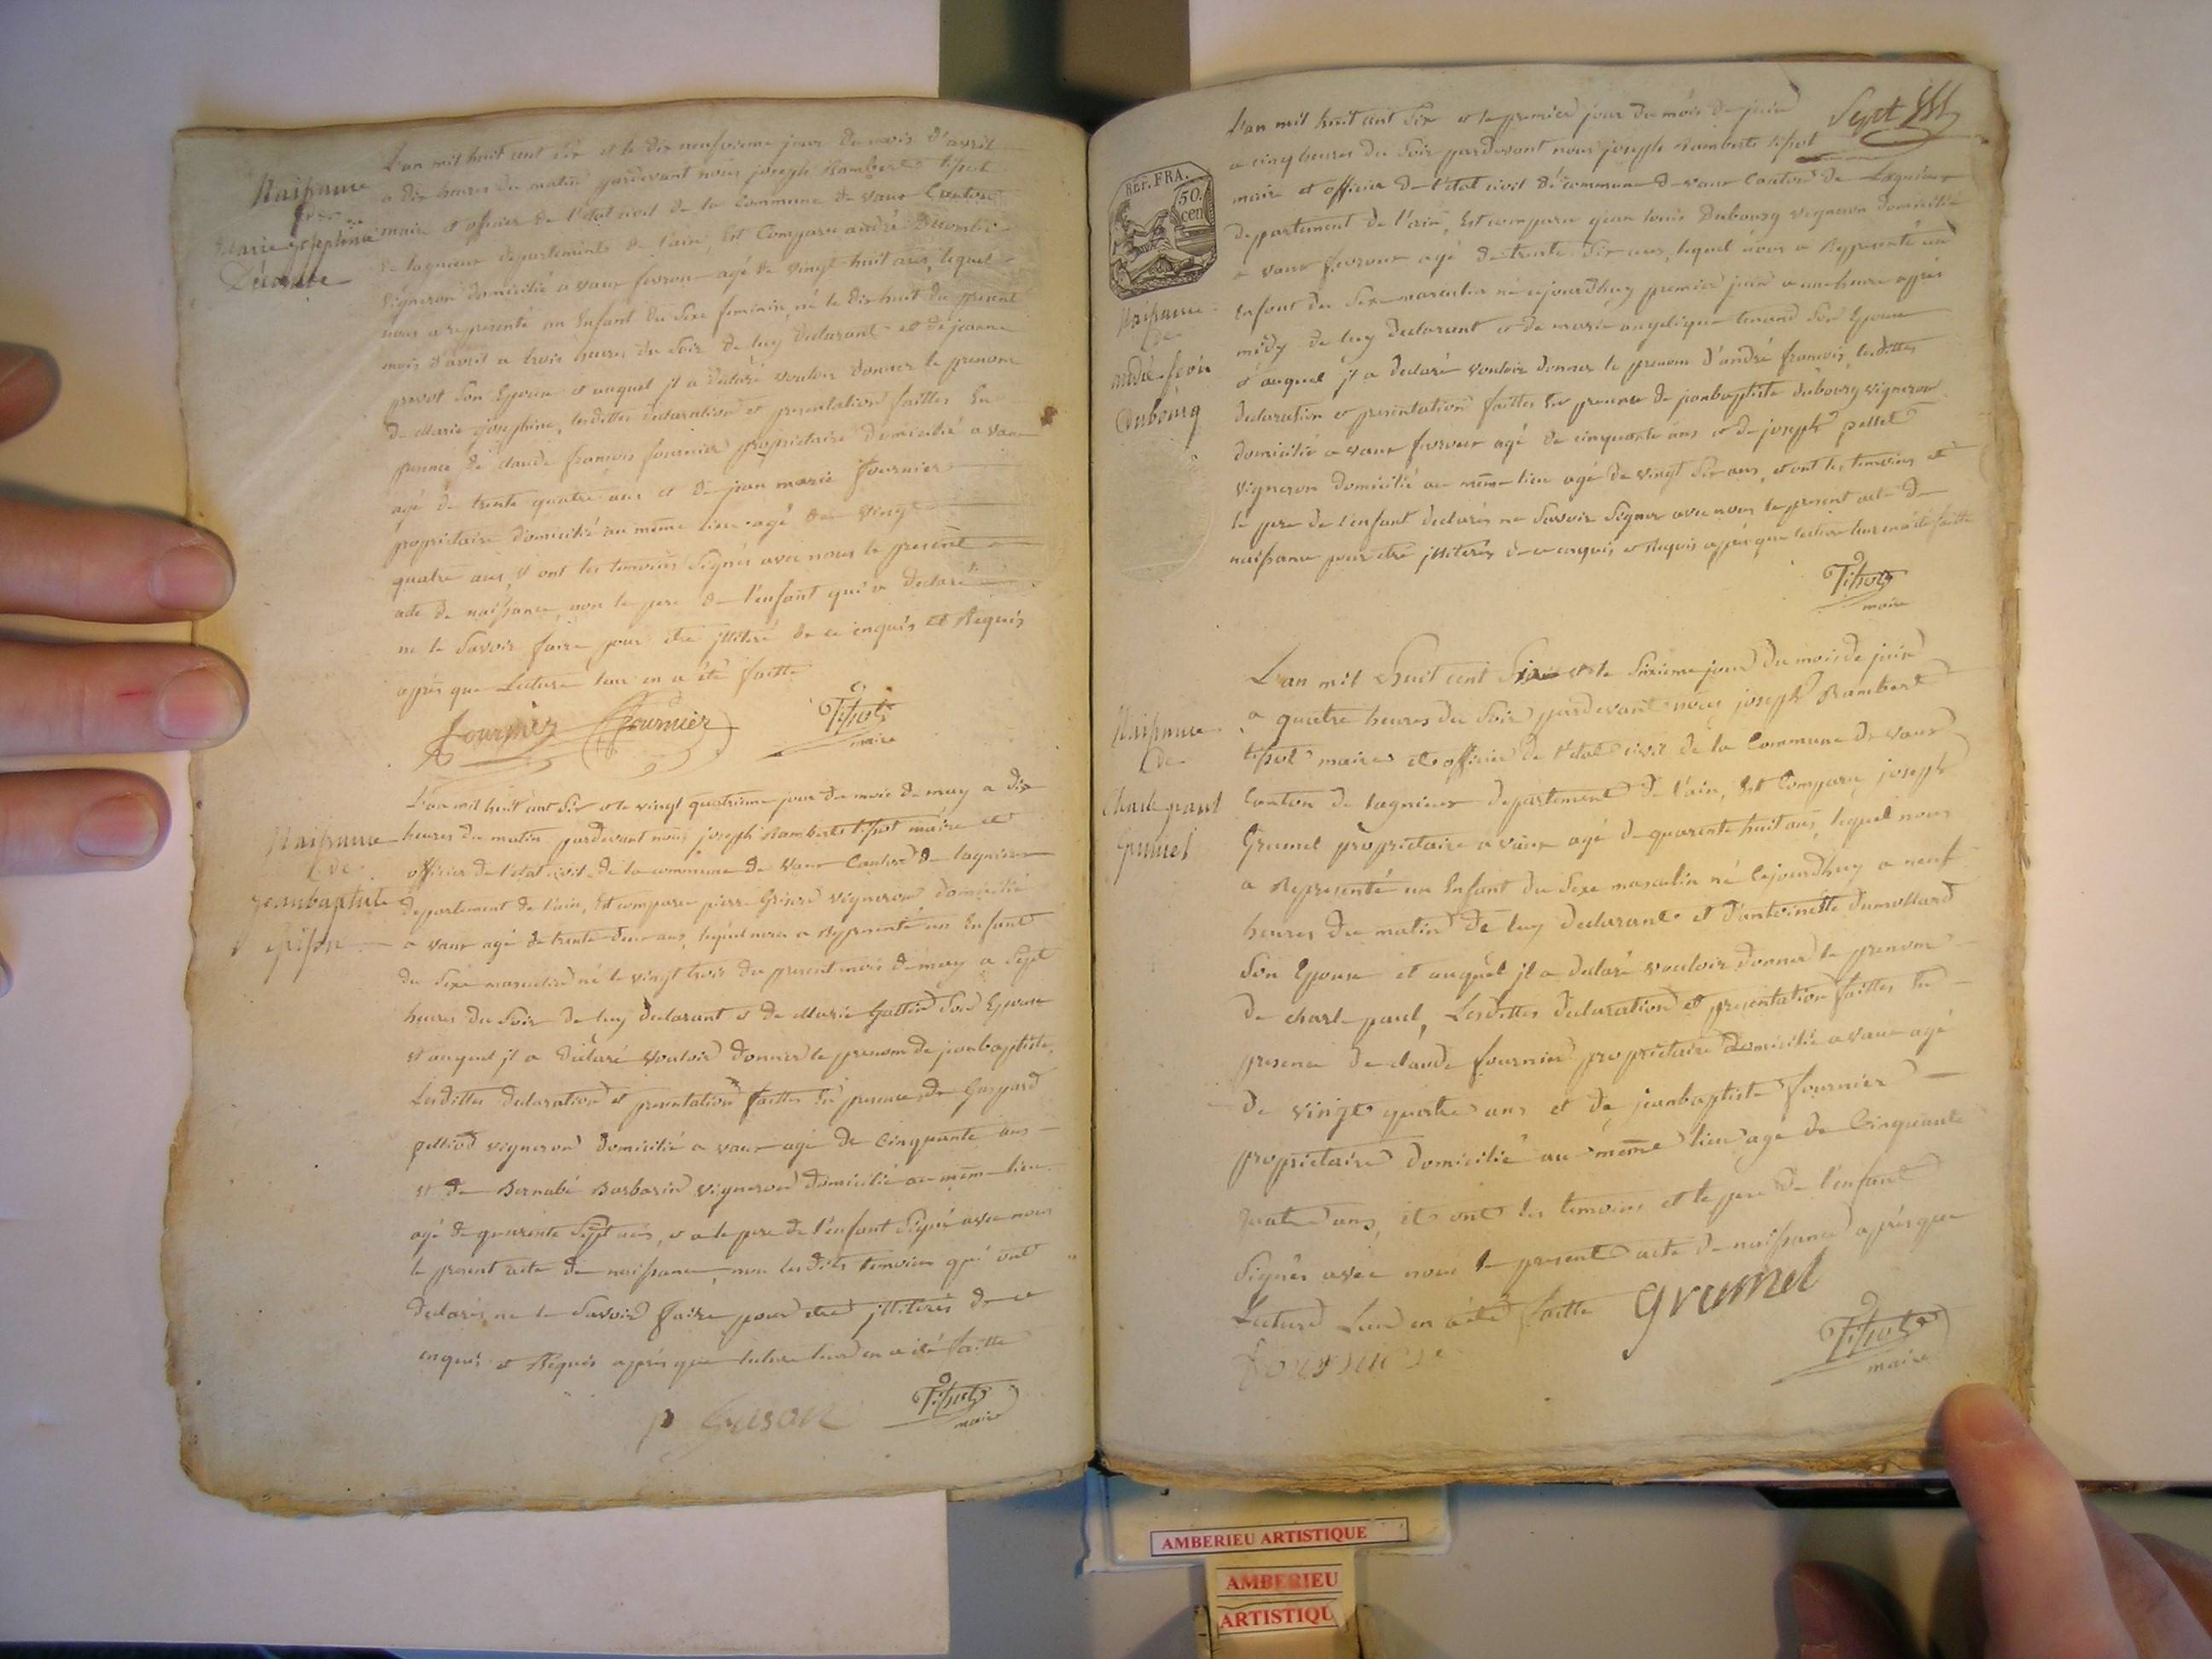 Naissance
de
Marie josephine
Décombe
L'an mil huit cent six et le dix neufvieme jour du mois d'avril
a dix heures du matin pardevant nous joseph Rambert tissot
maire et officier de l'état civil de la commune de vaux Canton
de lagnieux departement de l'ain, Est Comparu andré Decombe
vigneron domicilié a vaux fevroux agé de vingt huit ans, lequel
nous a representé un Enfant du Sexe feminin, né le dix huit du present
mois d'avril a trois heures du Soir de luy declarant et de jeanne
prevot Son Epouse et auquel il a declaré vouloir donner le prenom
de Marie josephine, lesdittes declaration et presentation faittes En
presence de claude françois fournier propriétaire domicilié a vaux
agé de trente quatre ans et de jean marie fournier
propriétaire domicilié au même lieu agé de vingt
quatre ans, et ont les temoins Signés avec nous le present
acte de naissance, non le pere de l'enfant qui a declaré
ne le Savoir faire pour etre illitéré de ce enquis et Requis
après que Lecture leur en a été faitte
fournier fournier Tissot
maire
Naissance
de
jeanbaptiste
Grison
L'an mil huit cent Six et le vingt quatrieme jour du mois de may a dix
heures du matin pardevant nous joseph Rambert tissot maire et
officier de l'état civil de la commune de vaux Canton de lagnieux
departement de l'ain, Est comparu pierre Grison vigneron domicilié
a vaux agé de trente deux ans, lequel nous a Representé un Enfant
du Sexe masculin né le vingt trois du present mois de may a Sept
heures du Soir de luy declarant et de Marie Gallin Son Epouse
et auquel il a declaré vouloir donner le prenom de jeanbaptiste,
Lesdittes declaration et presentation faittes En presence de Gaspard
pelliod vigneron domicilié a vaux agé de Cinquante ans
et de Bernabé Barbarin vigneron domicilié au même lieu
agé de quarente Sept ans, et a le pere de l'enfant Signé avec nous
le present acte de naissance, non lesdits temoins qui ont
declarés ne le Savoir faire pour etre illiterés de ce
enquis et Requis après que lecture leur en a été faitte
p Grison Tissot
maire
Sept
REP. FRA.
50.
cen
Naissance
de
andré fcois
Dubourg
L'an mil huit cent Six et le premier jour du mois de juin
a cinq heures du Soir pardevant nous joseph Rambert tissot
maire et officier de l'état civil de commune de vaux Canton de Lagnieux
departement de l'ain, Est comparu jean louis Dubourg vigneron domicilié
a vaux fevroux agé de trente Six ans, lequel nous a Representé un
Enfant du Sexe masculin né cejourdhuy premier juin a une heure après
midy de luy declarant et de marie angelique tenand Son Epouse
et auquel il a declaré vouloir donner le prenom d'andré françois, lesdittes
declaration et presentation faittes En presence de jeanbaptiste dubourg vigneron
domicilié a vaux fevroux agé de cinquante ans et de joseph pellet
vigneron domicilié au même lieu agé de vingt Six ans, et ont les temoins et
le pere de l'enfant declarés ne Savoir Signer avec nous le present acte de
naissance pour etre illiterés de ce enquis et Requis après que lecture leur en a été faitte
Tissot
maire
Naissance
de
Charle paul
Grumel
L'an mil huit cent Six et le Sixieme jour du mois de juin
a quatre heures du Soir pardevant nous joseph Rambert
tissot maire et officier de l'état civil de la Commune de vaux
Canton de lagnieux departement de l'ain, Est Comparu joseph
Grumel propriétaire a vaux agé de quarente huit ans, lequel nous
a Representé un Enfant du Sexe masculin né Cejourdhuy a neuf
heures du matin de luy declarant et d'antoinette dumollard
Son Epouse et auquel il a declaré vouloir donner le prenom
de charle paul, Lesdittes declaration et presentation faittes En
presence de claude fournier propriétaire domicilié a vaux agé
de vingt quatre ans et de jeanbaptiste fournier
propriétaire domicilié au même lieu agé de Cinquante
quatre ans, et ont les temoins et le pere de l'enfant
Signés avec nous le present acte de naissance après que
Lecture Leur en a été faitte Grumel
Tissot
maire
AMBERIEU ARTISTIQUE
AMBERIEU
ARTISTIQU